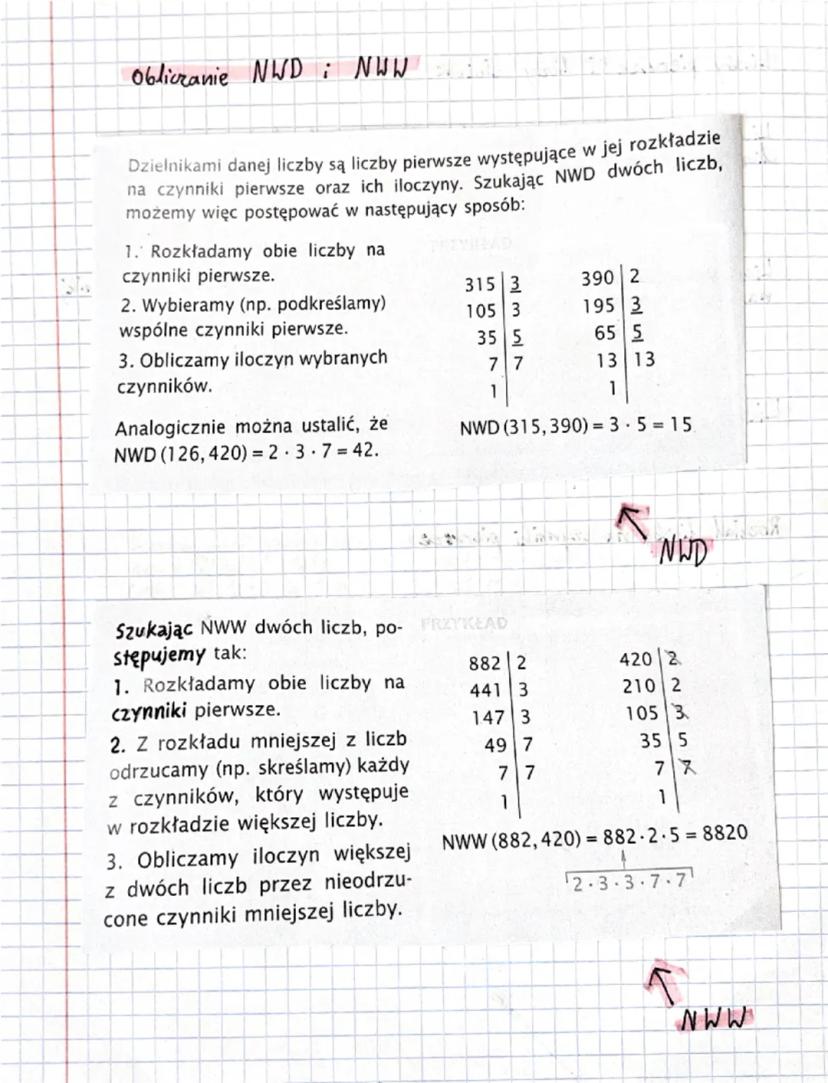 Obliczanie NWD i NWW
Dzielnikami danej liczby są liczby pierwsze występujące w jej rozkładzie
na czynniki pierwsze oraz ich iloczyny. Szukając NWD dwóch liczb,
możemy więc postępować w następujący sposób:
1. Rozkładamy obie liczby na
czynniki pierwsze.
2. Wybieramy (np. podkreślamy)
wspólne czynniki pierwsze.
3. Obliczamy iloczyn wybranych
czynników.
Analogicznie można ustalić, że
NWD (126, 420) = 2 · 3 · 7 = 42.
315 | 3 390 | 2
105 | 3 195 | 3
35 | 5 65 | 5
7 | 7 13 | 13
1 | 1 |
NWD (315, 390) = 3 · 5 = 15
NWD
PRZYKŁAD
Szukając NWW dwóch liczb, po-
stępujemy tak:
1. Rozkładamy obie liczby na
czynniki pierwsze.
2. Z rozkładu mniejszej z liczb
odrzucamy (np. skreślamy) każdy
z czynników, który występuje
w rozkładzie większej liczby.
3. Obliczamy iloczyn większej
z dwóch liczb przez nieodrzu-
cone czynniki mniejszej liczby.
882 | 2 420 | 2
441 | 3 210 | 2
147 | 3 105 | 3
49 | 7 35 | 5
7 | 7 7 | 7
1 | 1 |
NWW (882, 420) = 882 · 2 · 5 = 8820
2 · 3 · 3 · 7 · 7
NWW